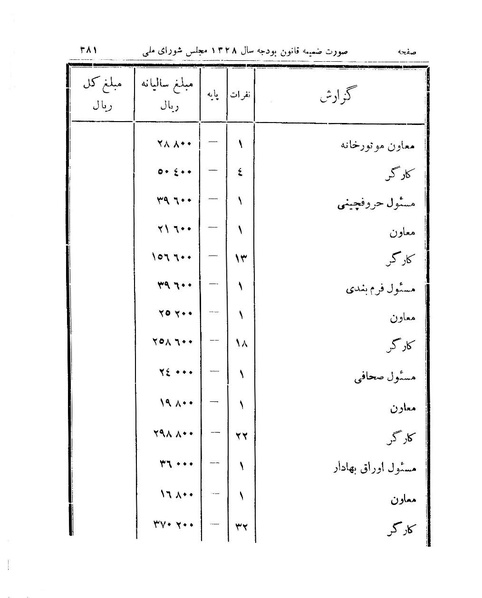 صفحه صورت ضمیمه قانون بودجه سال ۱۳۲۸ مجلس شورای ملی ۳۸۱
گزارش نفرات پایه مبلغ سالیانه ریال مبلغ کل ریال
معاون موتورخانه ۱ — ۲۸ ۸۰۰
کارگر ۴ — ۵۰ ۴۰۰
مسئول حروفچینی ۱ — ۳۹ ۶۰۰
معاون ۱ — ۲۱ ۶۰۰
کارگر ۱۳ — ۱۵۶ ۶۰۰
مسئول فرم بندی ۱ — ۳۹ ۶۰۰
معاون ۱ — ۲۵ ۲۰۰
کارگر ۱۸ — ۲۵۸ ۶۰۰
مسئول صحافی ۱ — ۲۴ ۰۰۰
معاون ۱ — ۱۹ ۸۰۰
کارگر ۲۲ — ۲۹۸ ۸۰۰
مسئول اوراق بهادار ۱ — ۳۶ ۰۰۰
معاون ۱ — ۱۶ ۸۰۰
کارگر ۳۲ — ۳۷۰ ۲۰۰